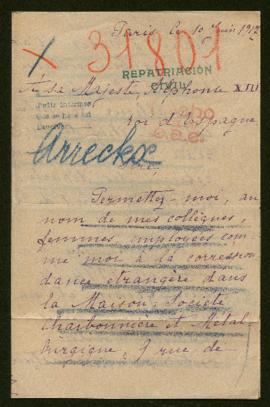 Paris le 10 Juin 1917
X 31801
REPATRIACIÓN
CIVIL
A sa Majesté Alphonse XIII
roi d'Espagne
Arrecko
Sire,
Permettez-moi, au
nom de mes collègues,
femmes employées com
me moi à la correspon
dance étrangère dans
la Maison: Société
Charbonnière et Métal
lurgique, 9 rue de